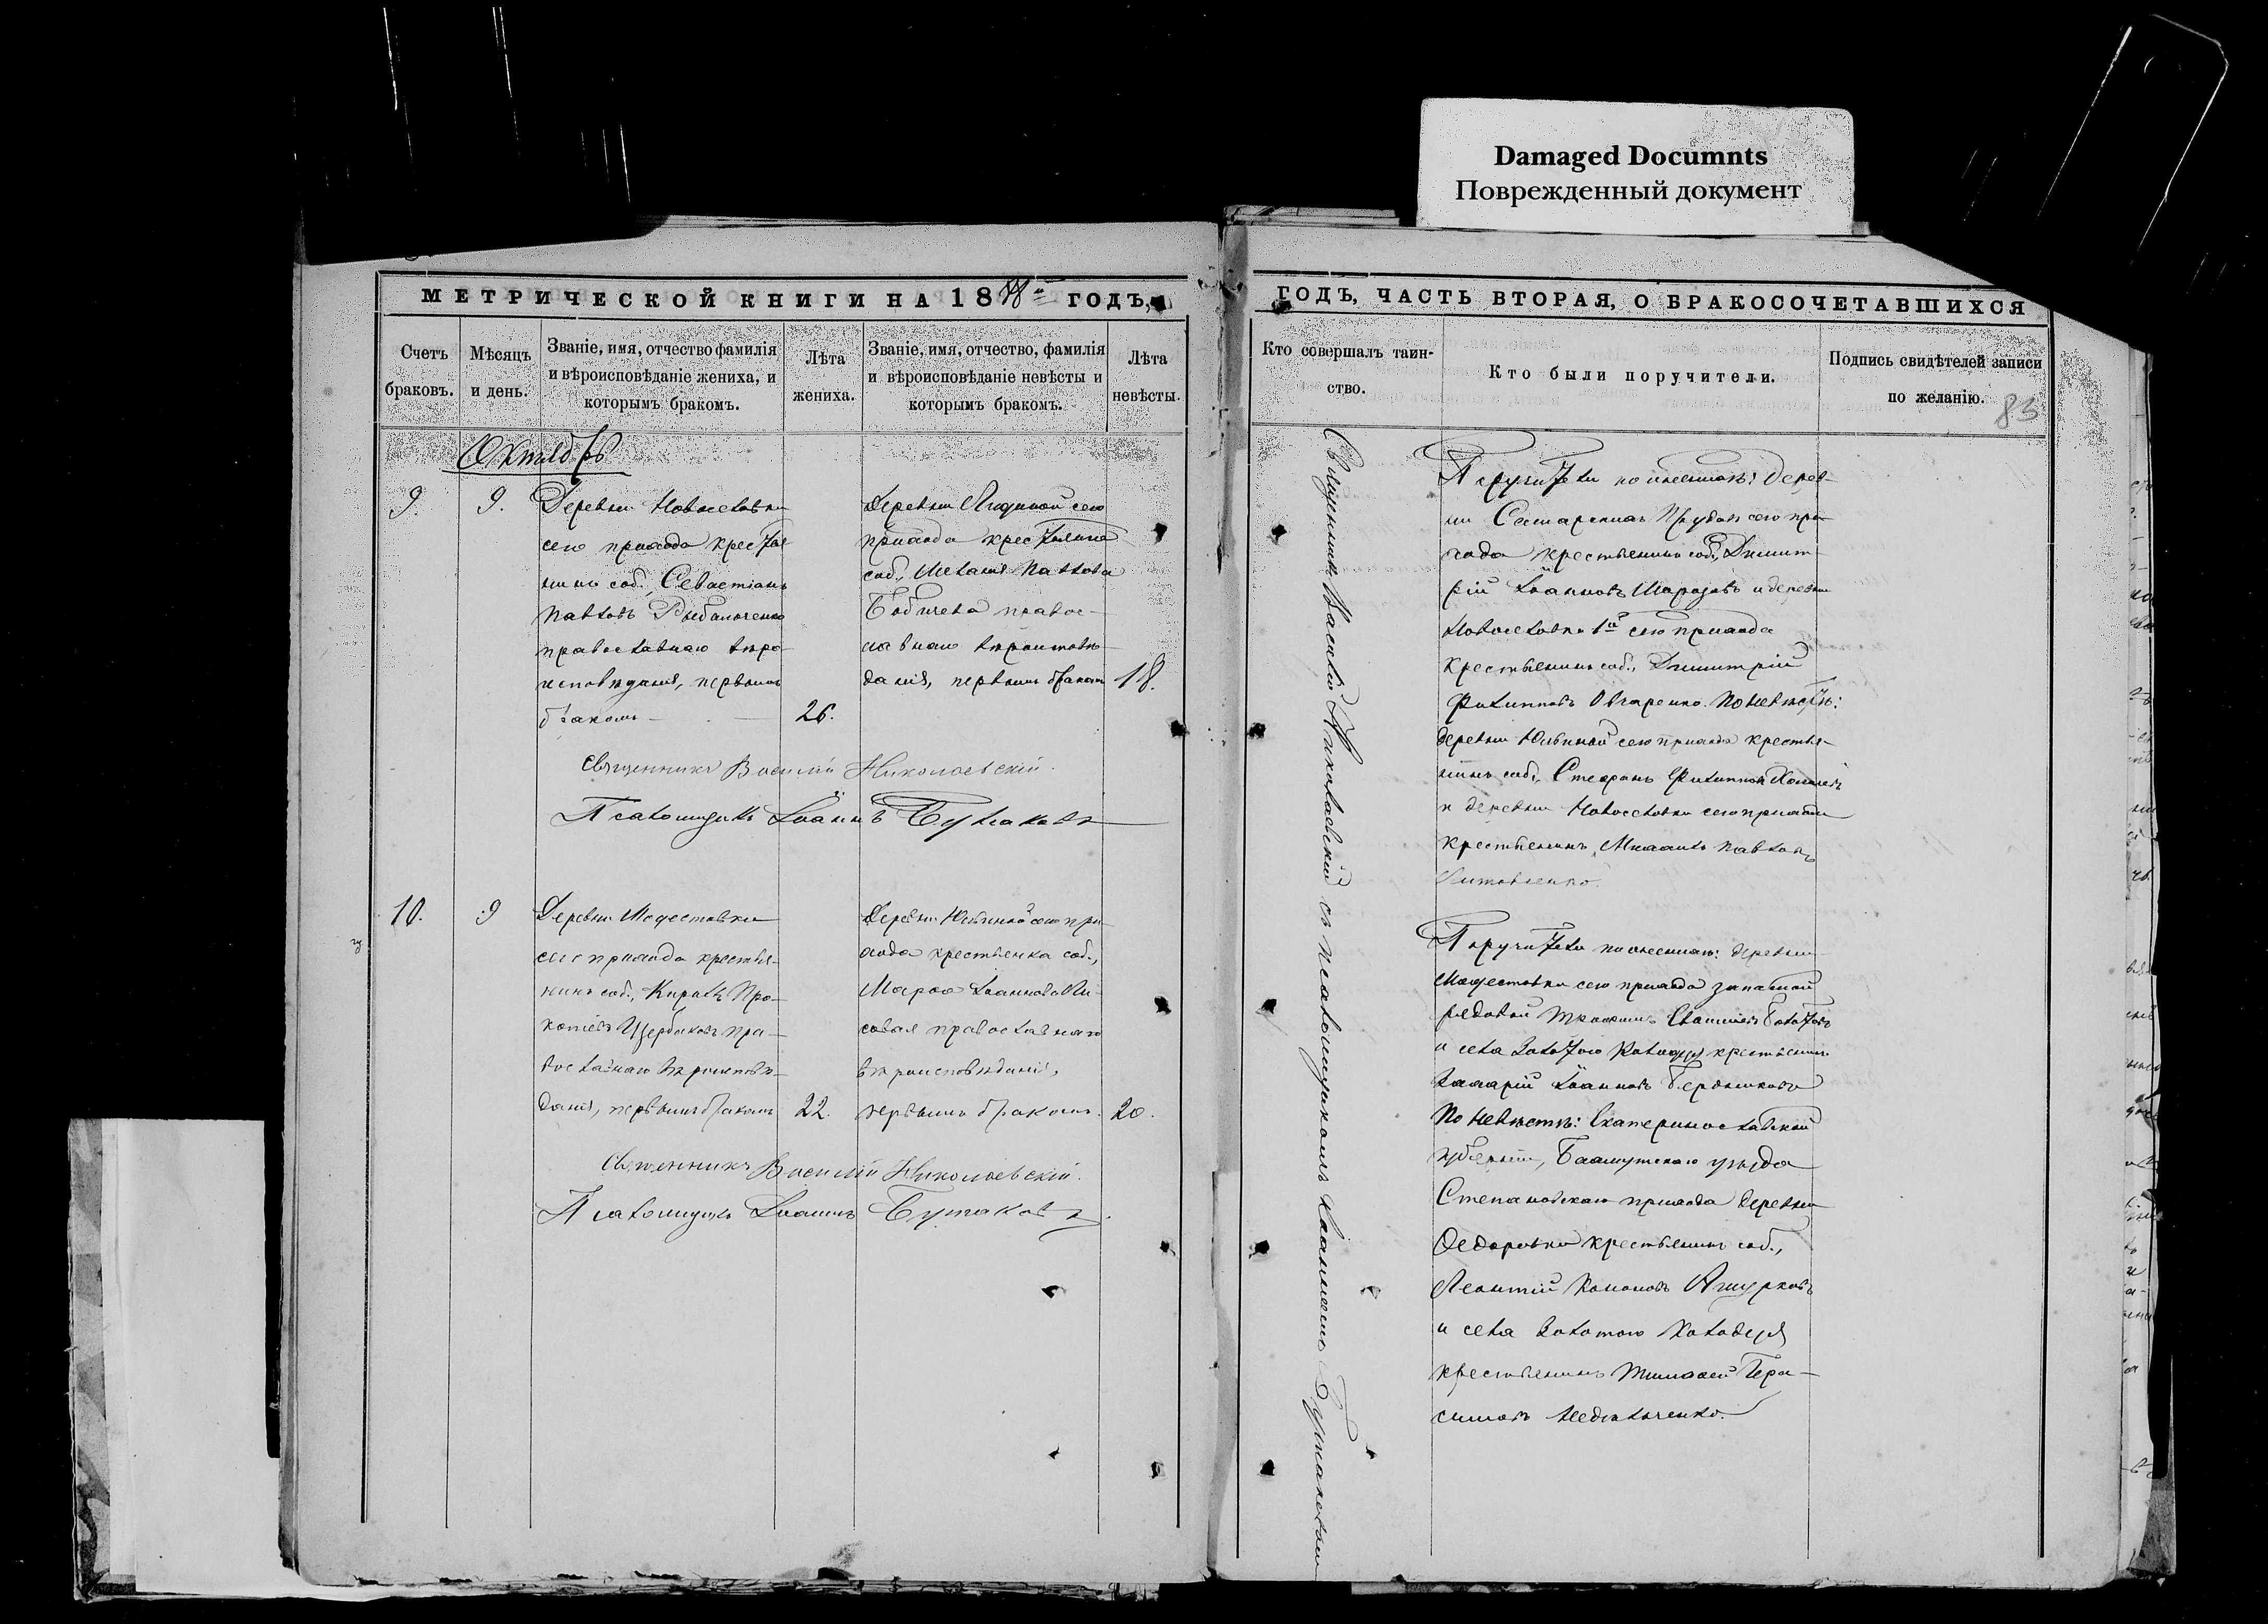 Damaged Documnts
Поврежденный документ
МЕТРИЧЕСКОЙ КНИГИ НА 1888й ГОДЪ,
Счетъ браковъ.
Мѣсяцъ и день.
Званіе, имя, отчество фамилія
и вѣроисповѣданіе жениха, и
которымъ бракомъ.
Лѣта
жениха.
Званіе, имя, отчество, фамилія
и вѣроисповѣданіе невѣсты и
которымъ бракомъ.
Лѣта
невѣсты.
Октябрь
9.
9.
Деревни Новоселовки
сего прихода крестья
нинъ соб., Севастіанъ
Павловъ Рыбальченко
православнаго вѣро-
исповѣданія, первымъ
бракомъ
26.
Деревни
сего
прихода крестьянка
соб., Меланія Павлова
Бабичева правос-
лавнаго вѣроисповѣ-
данія, первымъ бракомъ
18.
Священникъ Василій Николаевскій.
Псаломщикъ Іоаннъ
10.
9
Деревни Модестовки
сего прихода крестья-
нинъ соб., Кирилъ Про-
копіевъ Щербаковъ пра-
вославнаго вѣроисповѣ-
данія, первымъ бракомъ
22.
Деревни
сего при-
хода крестьянка соб.,
Марѳа Іоаннова
православнаго
вѣроисповѣданія,
первымъ бракомъ.
20.
Священникъ Василій Николаевскій.
Псаломщикъ Іоаннъ
ГОДЪ, ЧАСТЬ ВТОРАЯ, О БРАКОСОЧЕТАВШИХСЯ
Кто совершалъ таин-
ство.
Кто были поручители.
Подпись свидѣтелей записи
по желанію.
83
Священникъ Василій Николаевскій съ псаломщикомъ Іоанномъ
Поручители по женихѣ: дерев-
ни
сего при-
хода крестьянинъ соб., Димит-
рій Іоанновъ
и деревни
Новоселовки 1й сего прихода
крестьянинъ соб., Димитрій
Филипповъ Овчаренко. По невѣстѣ:
деревни
сего прихода крестья-
нинъ соб., Стефанъ Филипповъ
и деревни Новоселовки сего прихода
крестьянинъ Михаилъ Павловъ
Литовченко.
Поручители по женихѣ: деревни
Модестовки сего прихода запасной
рядовой Трофимъ
и села Золотого Колодезя крестьянинъ
Захарій Іоанновъ Бердниковъ
По невѣстѣ: Екатеринославской
губерніи, Бахмутскаго уѣзда
Степановскаго прихода деревни
Федоровки крестьянинъ соб.,
Леонтій Кононовъ
и села Золотого Колодезя
крестьянинъ Тимофей Гера-
симовъ